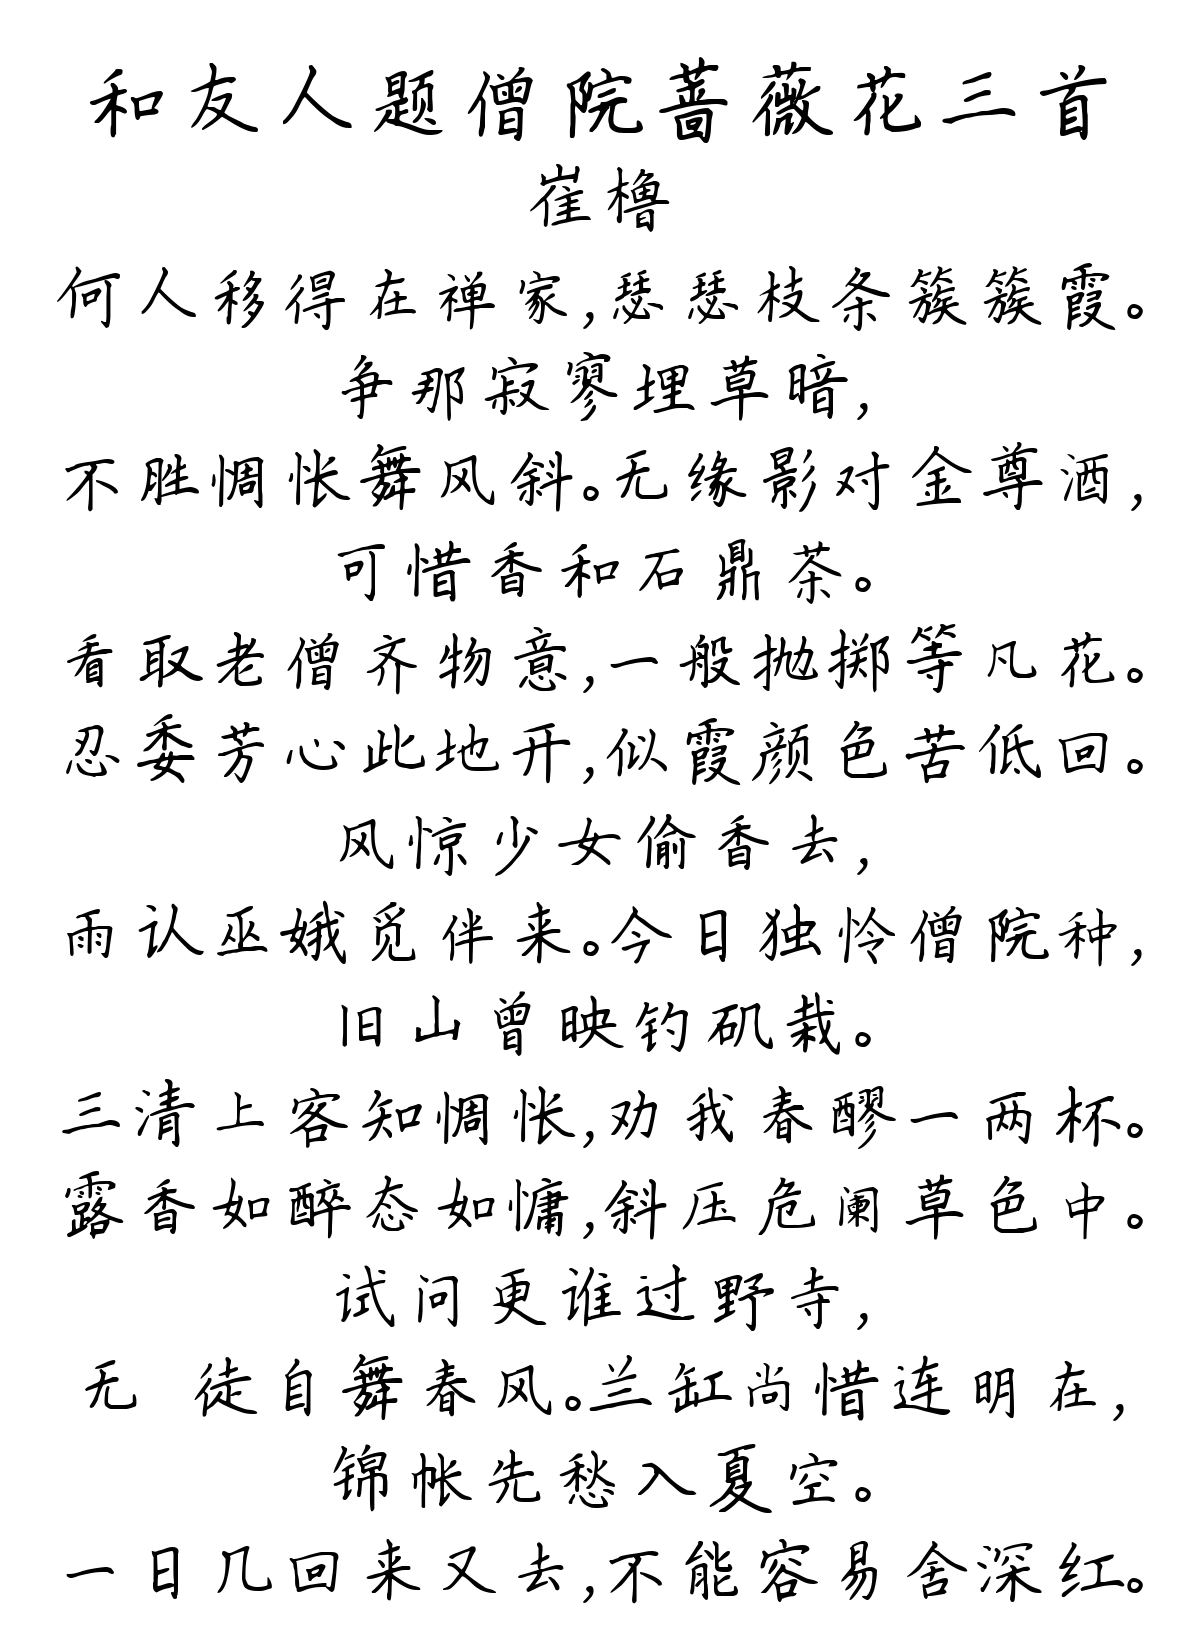 和友人题僧院蔷薇花三首
崔橹
何人移得在禅家,瑟瑟枝条簇簇霞。
争那寂寥埋草暗,
不胜惆怅舞风斜。无缘影对金尊酒,
可惜香和石鼎茶。
看取老僧齐物意,一般抛掷等凡花。
忍委芳心此地开,似霞颜色苦低回。
风惊少女偷香去,
雨认巫娥觅伴来。今日独怜僧院种,
旧山曾映钓矶栽。
三清上客知惆怅,劝我春醪一两杯。
露香如醉态如慵,斜压危阑草色中。
试问更谁过野寺,
无 徒自舞春风。兰缸尚惜连明在,
锦帐先愁入夏空。
一日几回来又去,不能容易舍深红。